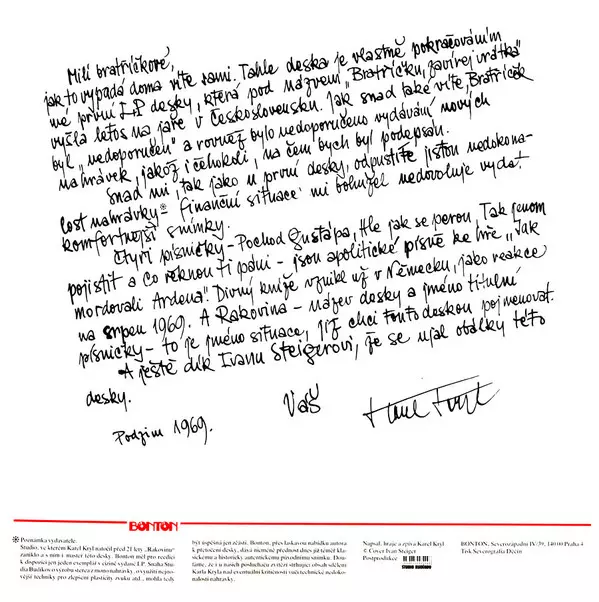 Milí bratříčkové,
jak to vypadá doma víte sami. Tahle deska je vlastně pokračováním
mé první LP desky, která pod názvem "Bratříčku, zavírej vrátka"
vyšla letos na jaře v Československu. Jak snad také víte, Bratříček
byl "nedoporučen" a rovněž bylo nedoporučeno vydávání nových
nahrávek, jakož i čehokoli, na čem bych byl podepsán.
Snad mi, tak jako u první desky, odpustíte jistou nedokona-
lost nahrávky* Finanční situace mi bohužel nedovoluje vydat
komfortnější snímky.
Čtyři písničky - Pochod Gustapa, Hle jak se perou, Tak jenom
pojistit a Co řeknou ti páni - jsou apolitické písně ke hře "Jak
mordovali Ardena". Divný kníže vznikl už v Německu, jako reakce
na srpen 1969. A Rakovina - název desky a jméno titulní
písničky - to je jméno situace, jíž chci touto deskou pojmenovat.
A ještě dík Ivanu Steigerovi, že se ujal obálky této
desky.
Váš
Karel Kryl
Podzim 1969.
BONTON
* Poznámka vydavatele.
Studio, ve kterém Karel Kryl natočil před 21 lety "Rakovinu"
zaniklo a s ním i master této desky. Bonton měl pro reedici
k dispozici jen jeden exemplář v cizině vydané LP. Snaha Stu-
dia Budíkov o výrobu stereo z mono nahrávky, o využití nejno-
vější techniky pro zlepšení plasticity zvuku atd., mohla tedy
být úspěšná jen zčásti. Bonton, přes laskavou nabídku autora
k přetočení desky, dává nicméně přednost dnes již téměř kla-
sickému a historicky autentickému původnímu snímku. Dou-
fáme, že i u našich posluchačů zvítězí strhující obsah sdělení
Karla Kryla nad eventuální kritičností vůči technické nedoko-
nalosti nahrávky.
Napsal, hraje a zpívá Karel Kryl
© Cover Ivan Steiger
Postprodukce
STUDIO BUDÍKOV
BONTON, Severozápadní IV/39, 140 00 Praha 4
Tisk Severografia Děčín